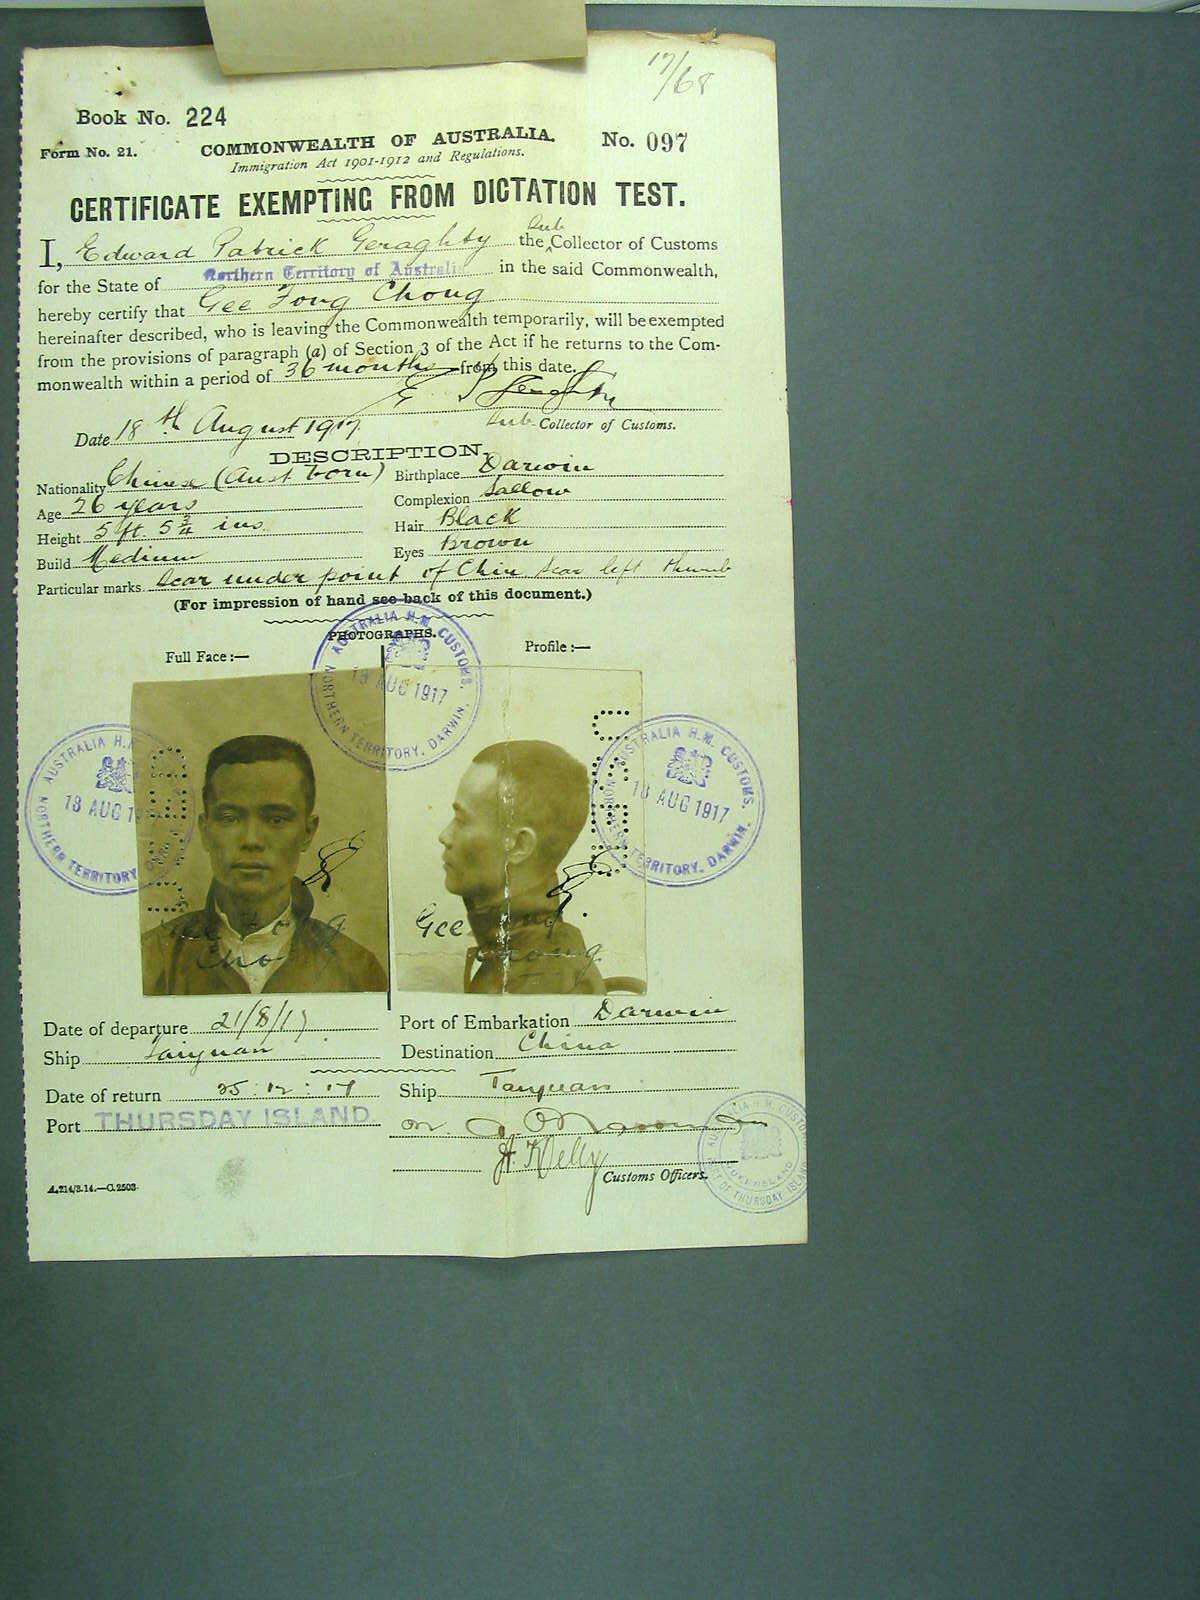 17/68
Book No. 224
Form No. 21.
COMMONWEALTH OF AUSTRALIA.
No. 097
Immigration Act 1901-1912 and Regulations.
CERTIFICATE EXEMPTING FROM DICTATION TEST.
I, Edward Patrick Geraghty the Sub Collector of Customs
for the State of Northern Territory of Australia in the said Commonwealth,
hereby certify that Gee Fong Chong
hereinafter described, who is leaving the Commonwealth temporarily, will be exempted
from the provisions of paragraph (a) of Section 3 of the Act if he returns to the Com-
monwealth within a period of 36 months from this date.
E P Geraghty
Date 18th August 1917.
Sub Collector of Customs.
DESCRIPTION.
Nationality Chinese (Aust born) Birthplace Darwin
Age 26 years Complexion Sallow
Height 5 ft. 5 3/4 ins Hair Black
Build Medium Eyes Brown
Particular marks Scar under point of Chin. Scar left thumb
(For impression of hand see back of this document.)
PHOTOGRAPHS.
Full Face:— Profile:—
AUSTRALIA H.M. CUSTOMS. NORTHERN TERRITORY, DARWIN.
18 AUG 1917
AUSTRALIA H.M.
18 AUG 1917
NORTHERN TERRITORY
AUSTRALIA H.M. CUSTOMS. NORTHERN TERRITORY, DARWIN.
18 AUG 1917
Gee Fong
Chong
Gee Fong
Chong
Date of departure 21/8/17 Port of Embarkation Darwin
Ship Taiyuan Destination China
Date of return 25:12:17 Ship Taiyuan
Port THURSDAY ISLAND
H. Kelly
Customs Officers.
AUSTRALIA H.M. CUSTOMS PORT OF THURSDAY ISLAND
QUEENSLAND
A.214/3.14.—C.2503